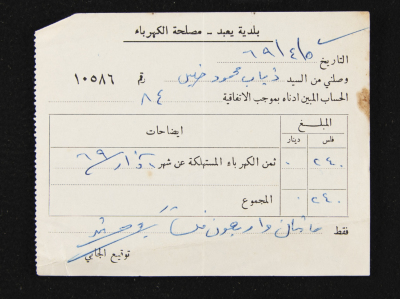 بلدية يعبد – مصلحة الكهرباء
التاريخ ٦٩/٤/٥
وصلني من السيد ذياب محمود رقم ١٠٥٨٦
الحساب المبين ادناه بموجب الاتفاقية ٨٤
المبلغ
ايضاحات
فلس دينار
٢٤٠ ٠ ثمن الكهرباء المستهلكة عن شهر آذار ٦٩
٢٤٠ ٠ المجموع
فقط مائتان واربعون فلس
توقيع الجابي